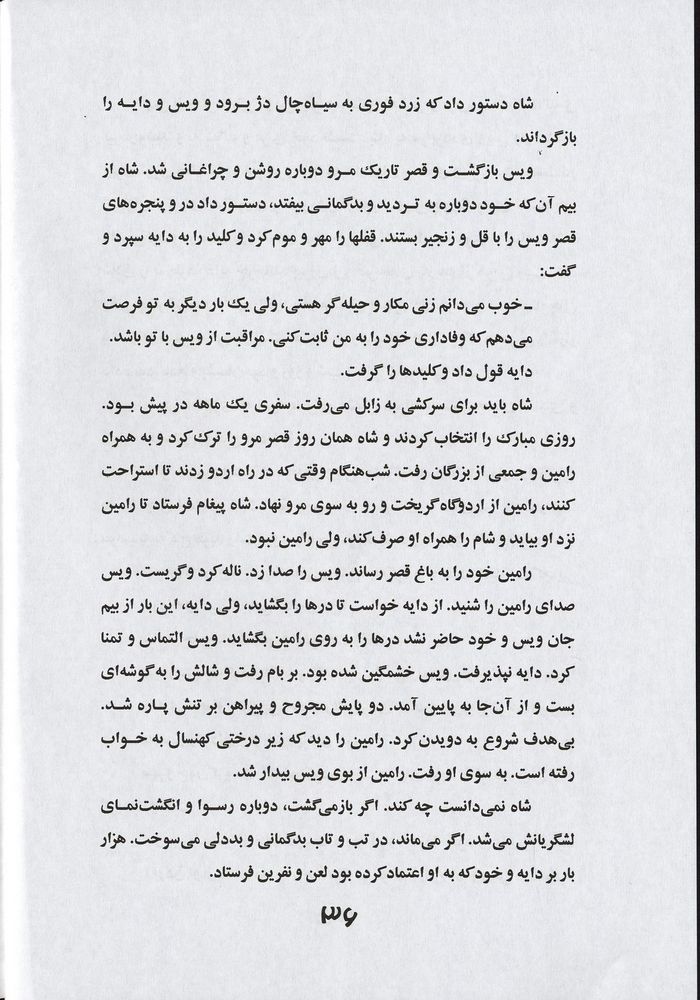 شاه دستور داد که زرد فوری به سیاه‌چال دژ برود و ویس و دایه را
بازگرداند.
ویس بازگشت و قصر تاریک مرو دوباره روشن و چراغانی شد. شاه از
بیم آن‌که خود دوباره به تردید و بدگمانی بیفتد، دستور داد در و پنجره‌های
قصر ویس را با قل و زنجیر بستند. قفلها را مهر و موم کرد و کلید را به دایه سپرد و
گفت:
ـ خوب می‌دانم زنی مکار و حیله‌گر هستی، ولی یک بار دیگر به تو فرصت
می‌دهم که وفاداری خود را به من ثابت کنی. مراقبت از ویس با تو باشد.
دایه قول داد و کلیدها را گرفت.
شاه باید برای سرکشی به زابل می‌رفت. سفری یک ماهه در پیش بود.
روزی مبارک را انتخاب کردند و شاه همان روز قصر مرو را ترک کرد و به همراه
رامین و جمعی از بزرگان رفت. شب‌هنگام وقتی که در راه اردو زدند تا استراحت
کنند، رامین از اردوگاه گریخت و رو به سوی مرو نهاد. شاه پیغام فرستاد تا رامین
نزد او بیاید و شام را همراه او صرف کند، ولی رامین نبود.
رامین خود را به باغ قصر رساند. ویس را صدا زد. ناله کرد و گریست. ویس
صدای رامین را شنید. از دایه خواست تا درها را بگشاید، ولی دایه، این بار از بیم
جان ویس و خود حاضر نشد درها را به روی رامین بگشاید. ویس التماس و تمنا
کرد. دایه نپذیرفت. ویس خشمگین شده بود. بر بام رفت و شالش را به گوشه‌ای
بست و از آن‌جا به پایین آمد. دو پایش مجروح و پیراهن بر تنش پاره شد.
بی‌هدف شروع به دویدن کرد. رامین را دید که زیر درختی کهنسال به خواب
رفته است. به سوی او رفت. رامین از بوی ویس بیدار شد.
شاه نمی‌دانست چه کند. اگر بازمی‌گشت، دوباره رسوا و انگشت‌نمای
لشگریانش می‌شد. اگر می‌ماند، در تب و تاب بدگمانی و بددلی می‌سوخت. هزار
بار بر دایه و خود که به او اعتماد کرده بود لعن و نفرین فرستاد.
۳۶